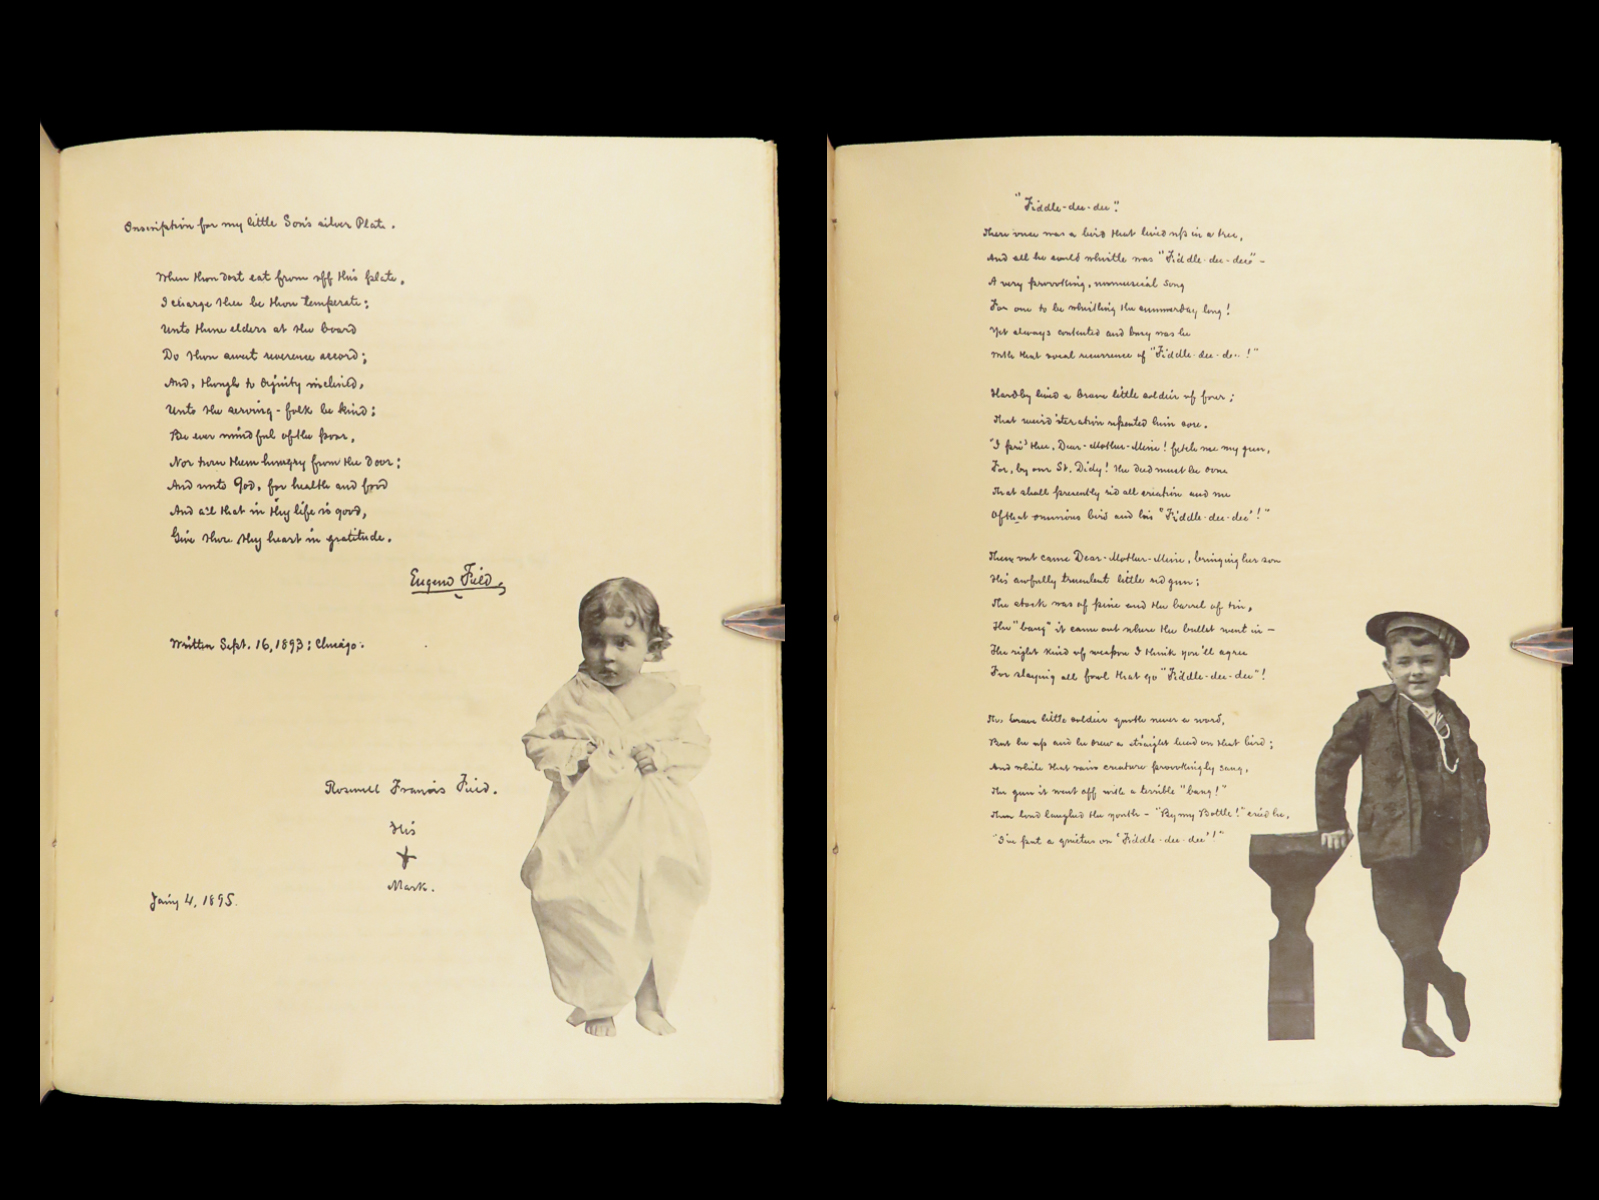 Inscription for my little Son's silver Plate.
When thou dost eat from off this plate,
I charge thee be thou temperate;
Unto thine elders at the board
Do thou sweet reverence accord;
And, though to dignity inclined,
Unto the serving-folk be kind;
Be ever mindful of the poor,
Nor turn them hungry from the door;
And unto God, for health and food
And all that in thy life is good,
Give thou thy heart in gratitude.
Eugene Field,
Written Sept. 16, 1893; Chicago.
Roswell Francis Field.
His
+
Mark.
Jany 4, 1895.
"Fiddle-dee-dee".
There once was a bird that lived up in a tree,
And all he could whistle was "Fiddle-dee-dee" –
A very provoking, unmusical song
For one to be whistling the summerday long!
Yet always contented and busy was he
With that vocal recurrence of "Fiddle-dee-dee!"
Hardby lived a brave little soldier of four;
That weird iteration repented him sore.
"I pri'thee, Dear-Mother-Mine! fetch me my gun,
For, by our St. Didy! the deed must be done
That shall presently rid all creation and me
Of that ominous bird and his 'Fiddle-dee-dee'!"
Then out came Dear-Mother-Mine, bringing her son
His awfully truculent little red gun;
The stock was of pine and the barrel of tin,
The "bang" it came out where the bullet went in –
The right kind of weapon I think you'll agree
For slaying all fowl that go "Fiddle-dee-dee"!
The brave little soldier quoth never a word,
But he up and he drew a straight bead on that bird;
And while that vain creature provokingly sang,
The gun it went off with a terrible "bang!"
Then loud laughed the youth – "By my Bottle!" cried he,
"I've put a quietus on 'Fiddle-dee-dee'!"